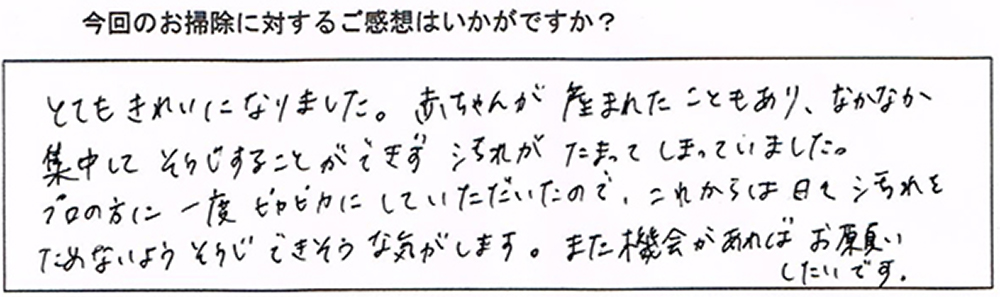 今回のお掃除に対するご感想はいかがですか？
とてもきれいになりました。赤ちゃんが産まれたこともあり、なかなか
集中してそうじすることができず汚れがたまってしまっていました。
プロの方に一度ピカピカにしていただいたので、これからは日々汚れを
ためないようそうじできそうな気がします。また機会があればお願い
したいです。